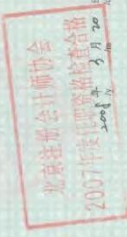 北京注册会计师协会
2007年度任职资格检查合格
2008年3月20日